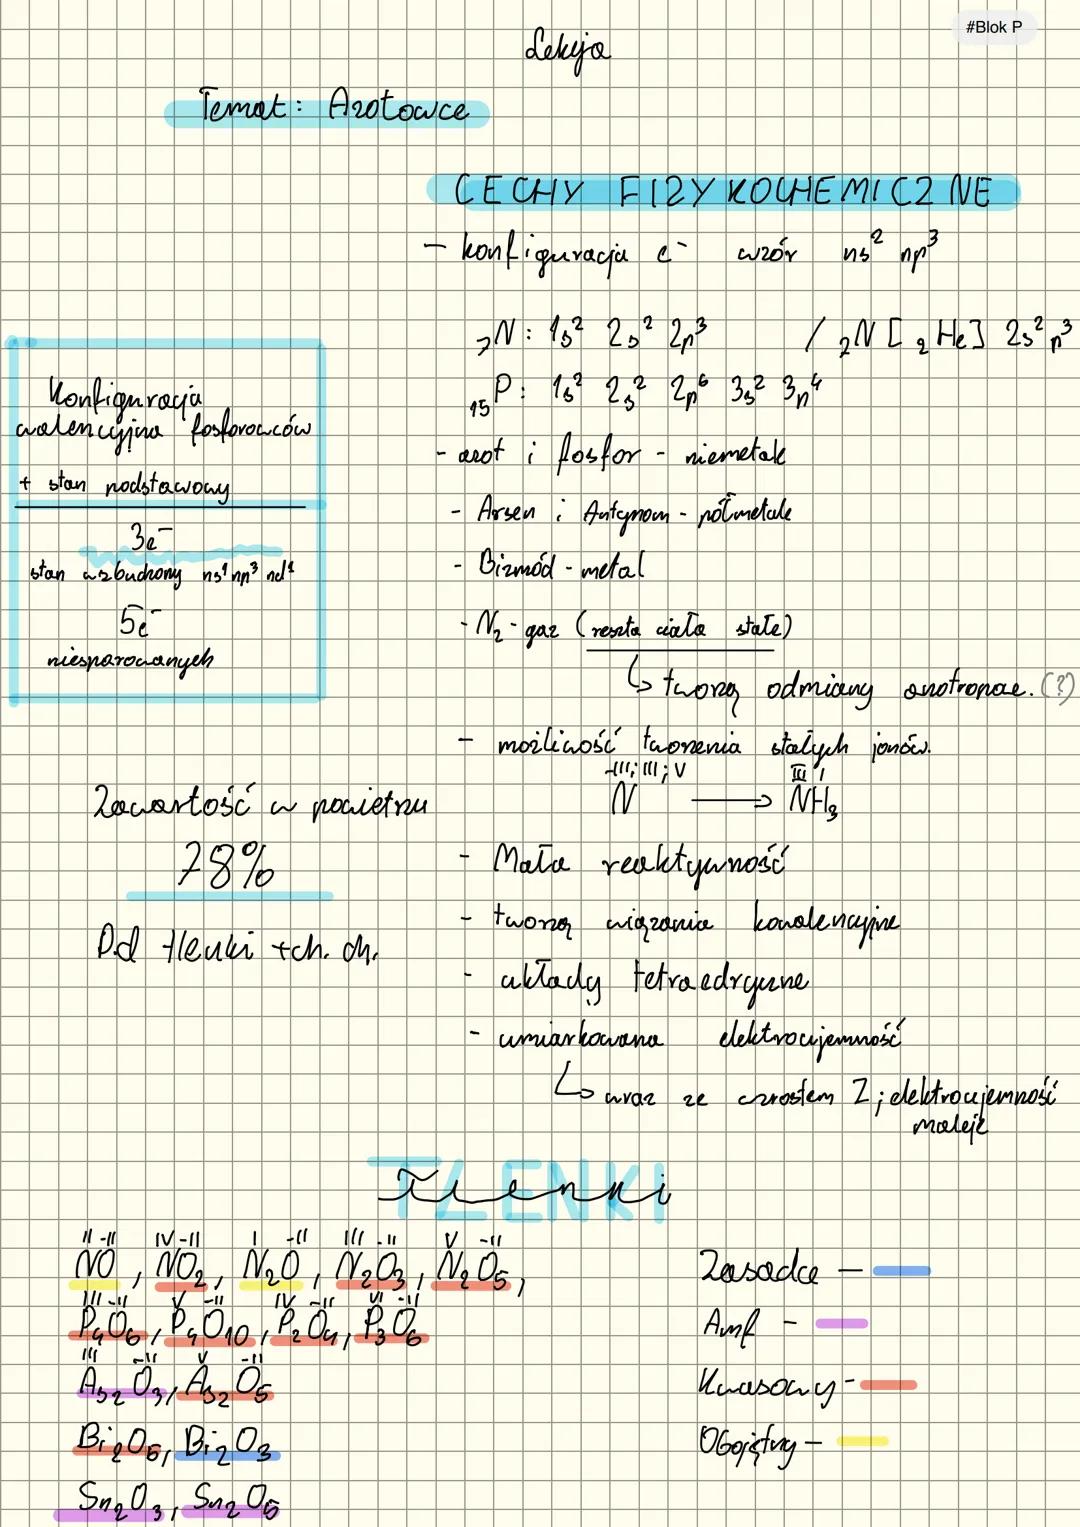 #Blok P
Lekcja
Temat: Azotowce
CECHY FIZYKOCHEMICZNE
- konfiguracja e⁻ wzór ns² np³
₇N: 1s² 2s² 2p³ / ₂N [₂He] 2s² p³
₁₅P: 1s² 2s² 2p⁶ 3s² 3p⁴
- azot i fosfor - niemetale
- Arsen i Antymom - półmetale
- Bizmód - metal
- N₂ - gaz (reszta ciała stałe)
↳ tworzą odmiany anotropae. (?)
- możliwość tworzenia stałych jonów.
-III; III; V III I
N → NH₃
- Mała reaktywność
- tworzą wiązania kowalencyjne
- układy tetraedryczne
- umiarkowana elektroujemność
↳ wraz ze wzrostem Z; elektroujemność
maleje
Konfiguracja
walencyjna fosforowców
+ stan podstawowy
3e⁻
stan wzbudzony ns¹ np³ nd¹
5e⁻
niesparowanych
Zawartość w powietrzu
78%
P.d tlenki + ch. ch.
TLENKI
Tlenki
II -II IV -II I -II III -II V -II
NO, NO₂, N₂O, N₂O₃, N₂O₅,
III -II V -II IV -II VI -II
P₄O₆, P₄O₁₀, P₂O₄, P₃O₆
III -II V -II
As₂O₃, As₂O₅
Bi₂O₅, Bi₂O₃
Sn₂O₃, Sn₂O₅
Zasadce -
Amf -
Kwasowy -
Obojętny -